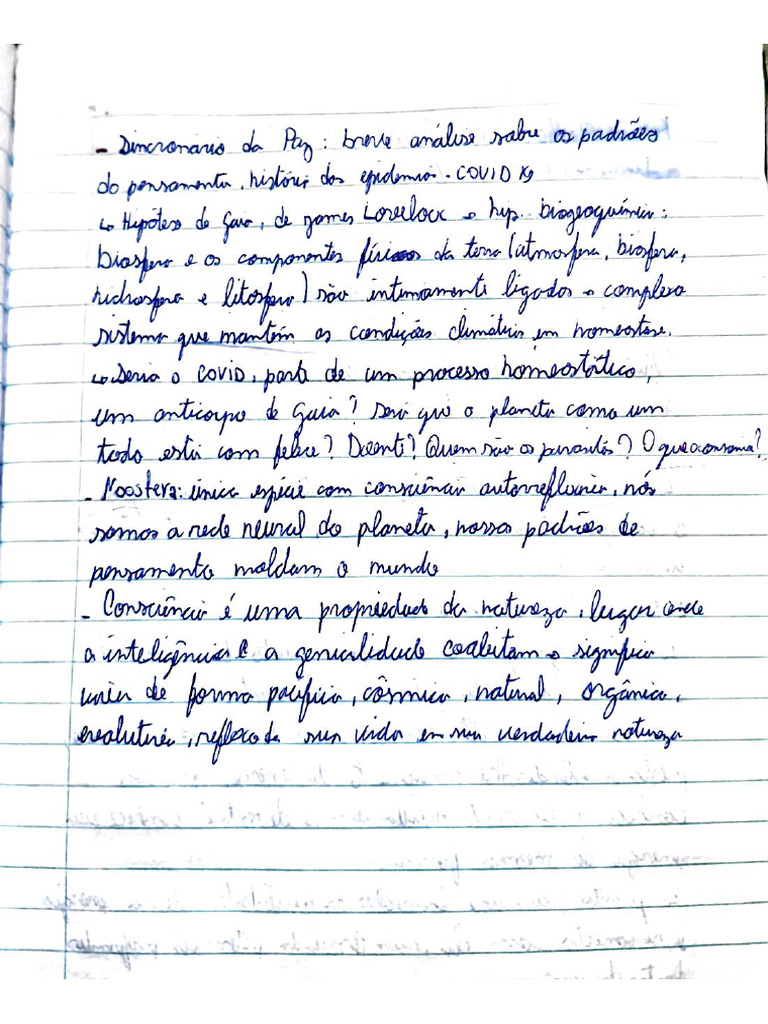 - Sincronário da Paz: breve análise sobre os padrões
do pensamento, história das epidemias - COVID 19
↳ Hipótese de Gaia, de James Lovelock → hip. biogeoquímica:
biosfera e os componentes físicos da terra (atmosfera, biosfera,
hidrosfera e litosfera) são intimamente ligados → complexo
sistema que mantém as condições climáticas em homeostase.
↳ Seria o COVID, parte de um processo homeostático,
um anticorpo de Gaia? Será que o planeta como um
todo está com febre? Doente? Quem são os parasitas? O que a consome?
- Noosfera: única espécie com consciência autorreflexiva, nós
somos a rede neural do planeta, nossos padrões de
pensamento moldam o mundo
- Consciência é uma propriedade da natureza, lugar onde
a inteligência e a genialidade coabitam → significa
viver de forma pacífica, cósmica, natural, orgânica,
evolutiva, reflexo da sua vida em sua verdadeira natureza